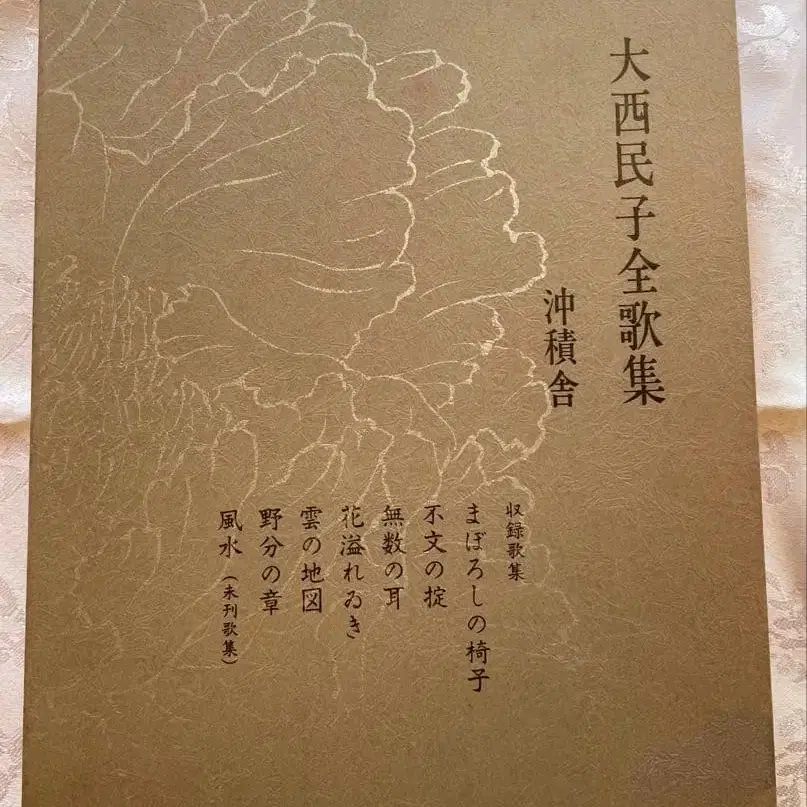 大西民子全歌集
沖積舎
収録歌集
まぼろしの椅子
不文の掟
無数の耳
花溢れゐき
雲の地図
野分の章
風水（未刊歌集）